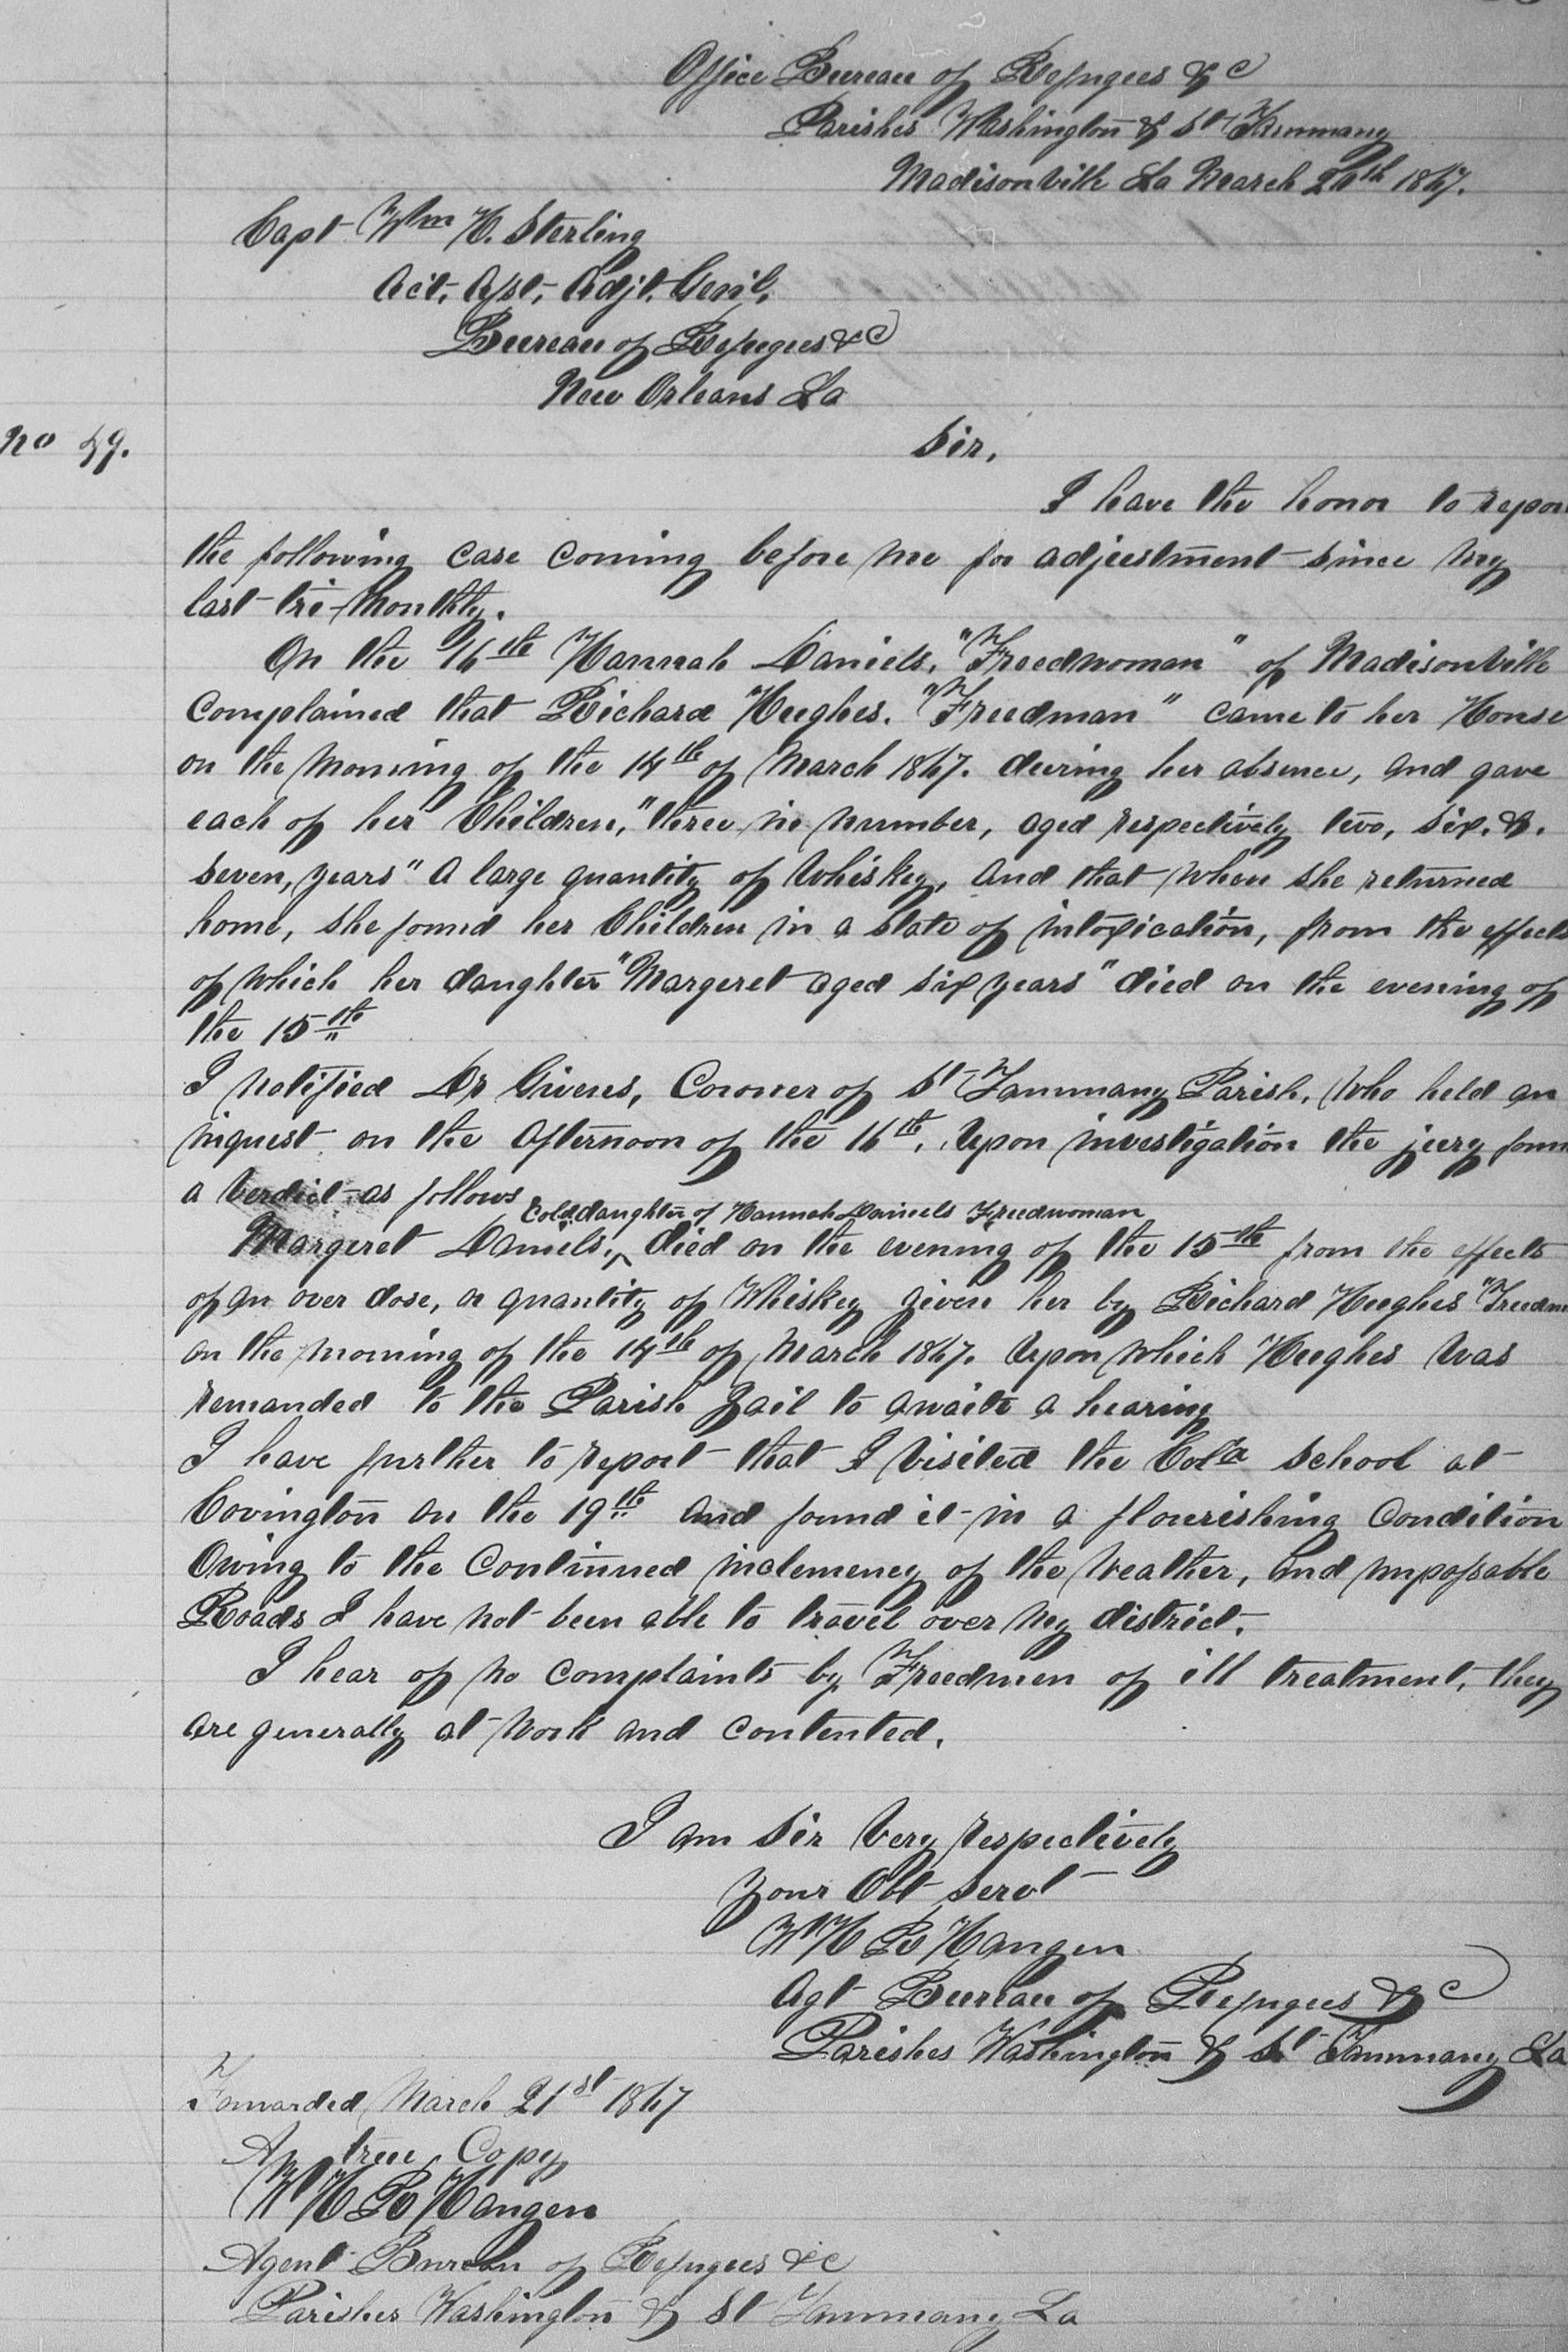 Office Bureau of Refugees &c
Parishes Washington & St Tammany
Madisonville La March 20th 1867.
Capt Wm H. Sterling
Act, Asst, Adjt. Genl,
Bureau of Refugees &c
New Orleans La
No 59.
Sir,
I have the honor to repor
the following case coming before me for adjustment since my
last tri-Monthly.
On the 16th Hannah Daniels, "Freedwoman" of Madisonville
Complained that Richard Hughes. "Freedman" came to her House
on the Morning of the 14th of March 1867. during her absence, and gave
each of her Children, "three in number, aged respectively two, six, &.
seven, years" a large quantity of Whiskey, and that when she returned
home, she found her Children in a state of intoxication, from the effects
of which her daughter "Margeret aged six years" died on the evening of
the 15th
I notified Dr Givens, Coroner of St Tammany Parish, Who held an
inquest on the afternoon of the 16th. Upon investigation the jury foun
a Verdict as follows
Cold daughter of Hannah Daniels Freedwoman
Margeret Daniels, ^ died on the evening of the 15th from the effects
of an over dose, or quantity of Whiskey given her by Richard Hughes "Freedm
on the morning of the 14th of March 1867. Upon which Hughes Was
remanded to the Parish Jail to await a hearing
I have further to report that I Visited the Cold School at
Covington on the 19th and found it in a flourishing Condition
Owing to the Continued inclemency of the Weather, and impassable
Roads I have not been able to travel over my district.
I hear of no complaints by Freedmen of ill treatment, they
are generally at Work and contented.
I am Sir Very respectively
Your Obt Servt
Wm H Haugen
Agt Bureau of Refugees &c
Parishes Washington & St Tammany La
Forwarded March 21st 1867
A true Copy
Haugen
Agent Bureau of Refugees &c
Parishes Washington & St Tammany La